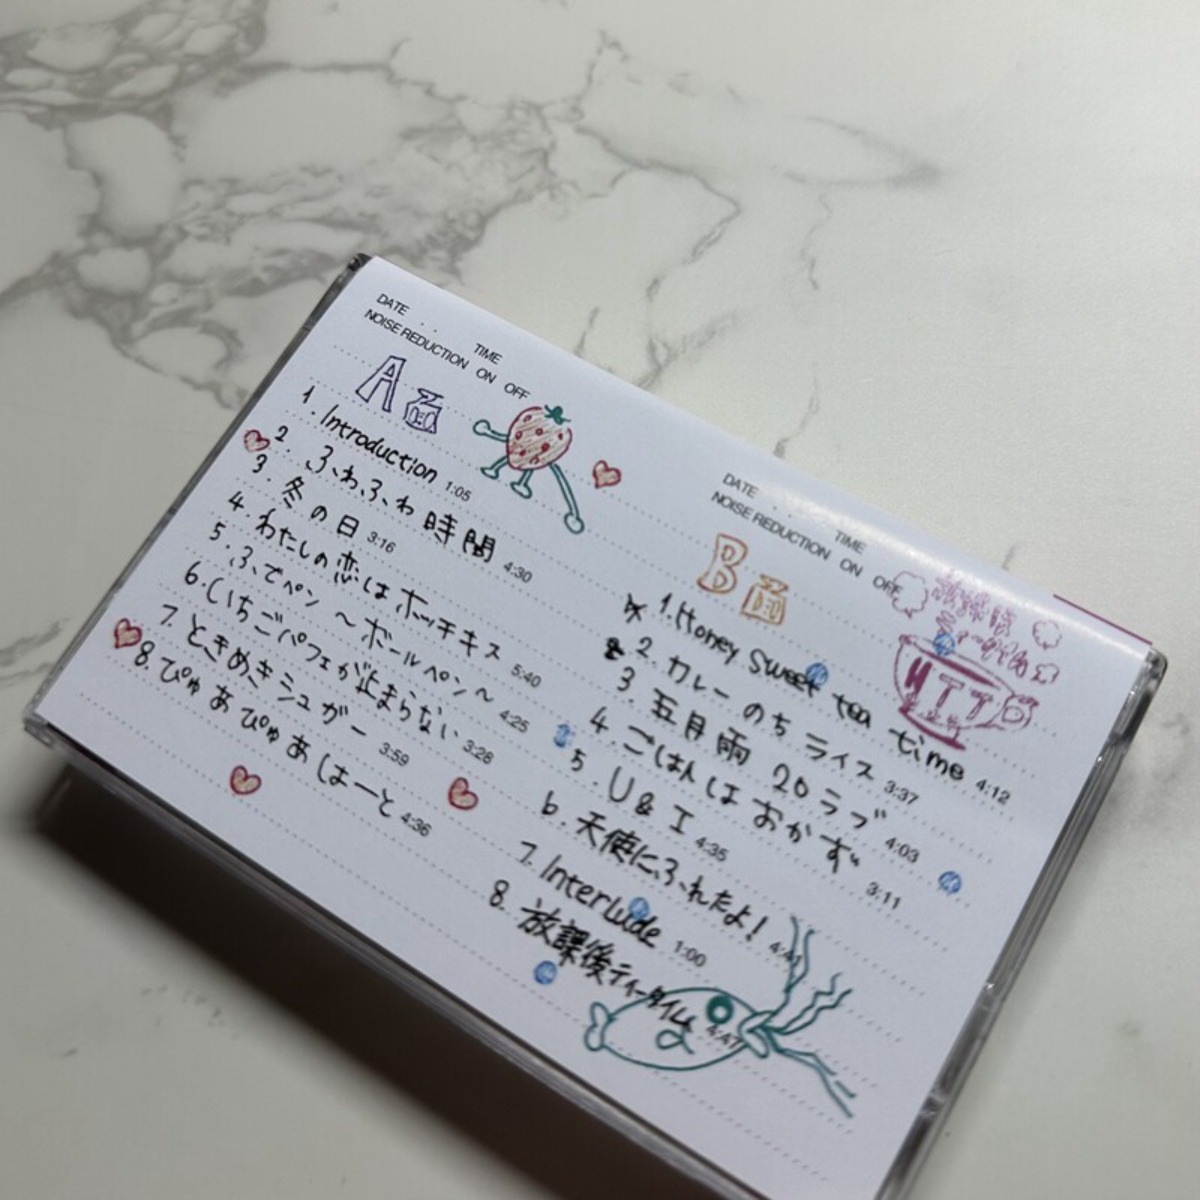 DATE . . TIME
NOISE REDUCTION ON OFF
A面
1. Introduction 1:05
2. ふわふわ時間 4:30
3. 冬の日 3:16
4. わたしの恋はホッチキス 5:40
5. ふでペン ～ボールペン～ 4:25
6. いちごパフェが止まらない 3:28
7. ときめきシュガー 3:59
8. ぴゅあぴゅあはーと 4:36
DATE . . TIME
NOISE REDUCTION ON OFF
B面
放課後
HTT
1. Honey sweet tea time 4:12
2. カレーのちライス 3:37
3. 五月雨20ラブ 4:03
4. ごはんはおかず 3:11
5. U&I 4:35
6. 天使にふれたよ! 4:41
7. Interlude 1:00
8. 放課後ティータイム 4:47